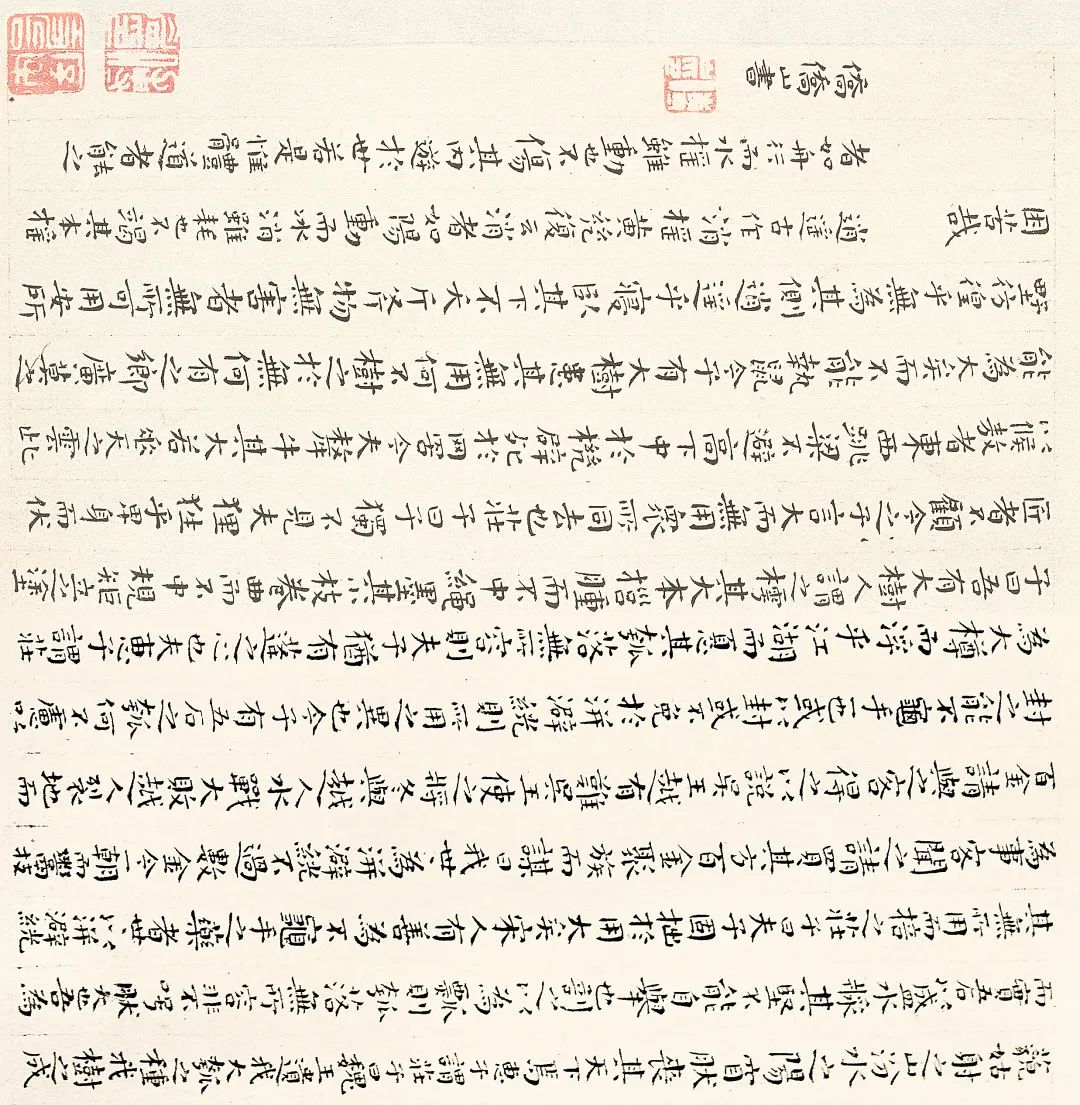 藐姑射之山汾水之陽窅然喪其天下焉惠子謂莊子曰魏王遺我大瓠之種我樹之成
而實五石以盛水漿其堅不能自舉也剖之以為瓢則瓠落無所容非不呺然大也吾為
其無用而掊之莊子曰夫子固拙於用大矣宋人有善為不龜手之藥者世世以洴澼絖
為事客聞之請買其方百金聚族而謀曰我世世為洴澼絖不過數金今一朝而鬻技
百金請與之客得之以說吳王越有難吳王使之將冬與越人水戰大敗越人裂地而
封之能不龜手一也或以封或不免於洴澼絖則所用之異也今子有五石之瓠何不慮以
為大樽而浮乎江湖而憂其瓠落無所容則夫子猶有蓬之心也夫惠子謂莊
子曰吾有大樹人謂之樗其大本擁腫而不中繩墨其小枝卷曲而不中規矩立之塗
匠者不顧今之子言大而無用眾所同去也莊子曰子獨不見夫狸狌乎卑身而伏
以候敖者東西跳梁不避高下中於機辟死於网罟今夫斄牛其大若垂天之雲此
能為大矣而不能執鼠今子有大樹患其無用何不樹之於無何有之鄉廣莫之
野彷徨乎無為其側逍遙乎寢臥其下不夭斤斧物無害者無所可用安所
困苦哉
逍遙古作消搖黃幾復云消者如陽動而冰消雖耗也不竭其本搖
者如舟行而水搖雖動也不傷其內遊於世若是惟體道者能之
僑僑山書